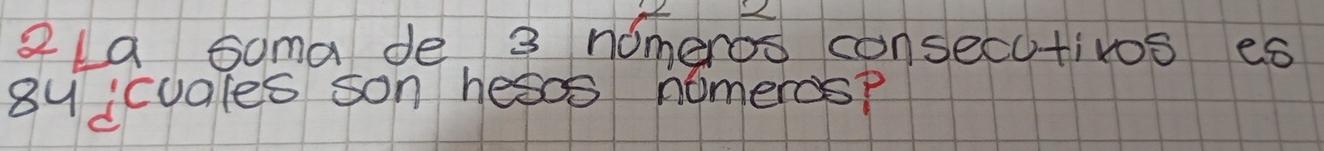 2 La suma de 3 números consecutivos es
84 ¿cuales son hesos números?